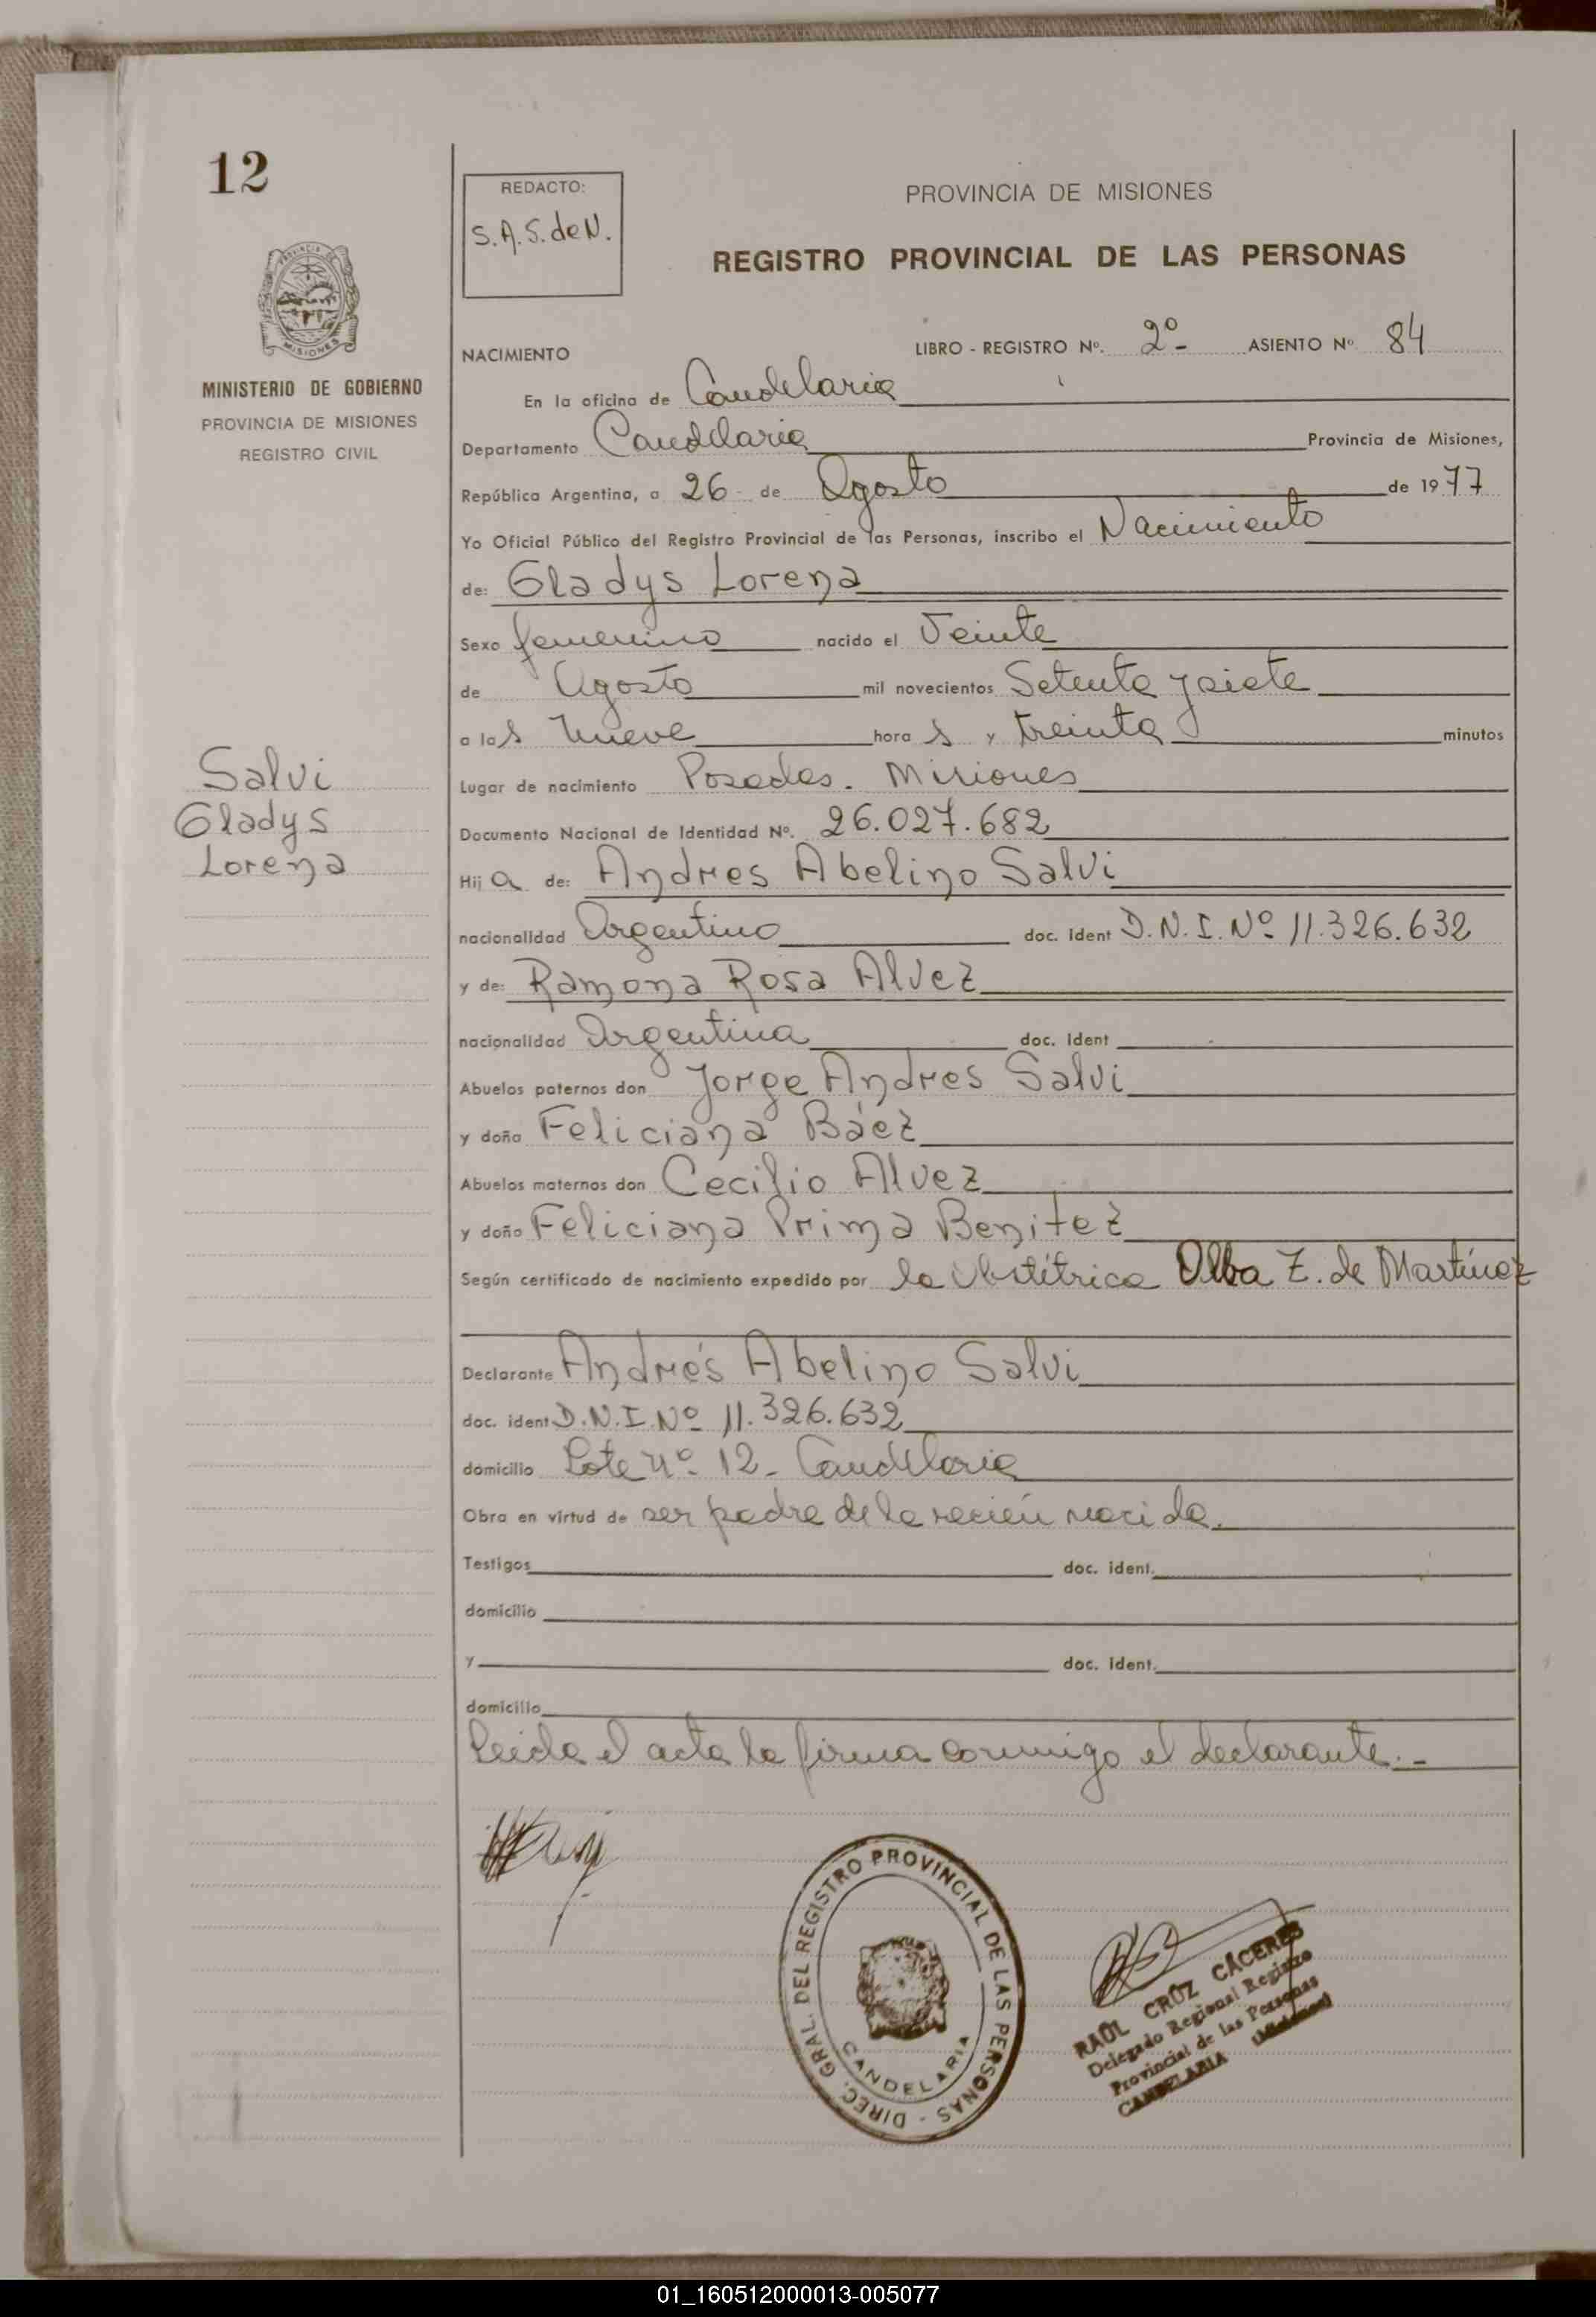 12
REDACTO:
S.A.S. de N.
PROVINCIA DE MISIONES
REGISTRO PROVINCIAL DE LAS PERSONAS
PROVINCIA DE
MISIONES
MINISTERIO DE GOBIERNO
PROVINCIA DE MISIONES
REGISTRO CIVIL
NACIMIENTO LIBRO - REGISTRO Nº. 2º- ASIENTO Nº 84
En la oficina de Candelaria
Departamento Candelaria Provincia de Misiones,
República Argentina, a 26 de Agosto de 1977
Yo Oficial Público del Registro Provincial de las Personas, inscribo el Nacimiento
de: Gladys Lorena
Sexo femenino nacido el Veinte
de Agosto mil novecientos Setenta y siete
a las nueve horas y treinta minutos
Lugar de nacimiento Posadas. Misiones
Documento Nacional de Identidad Nº. 26.027.682
Salvi
Gladys
Lorena
Hija de: Andres Abelino Salvi
nacionalidad Argentino doc. ident D.N.I. Nº 11.326.632
y de: Ramona Rosa Alvez
nacionalidad Argentina doc. ident
Abuelos paternos don Jorge Andres Salvi
y doña Feliciana Báez
Abuelos maternos don Cecilio Alvez
y doña Feliciana Prima Benitez
Según certificado de nacimiento expedido por la Obstétrica Olba Z. de Martínez
Declarante Andrés Abelino Salvi
doc. ident D.N.I. Nº 11.326.632
domicilio Lote nº 12- Candelaria
Obra en virtud de ser padre de la recién nacida.
Testigos doc. ident.
domicilio
y doc. ident.
domicilio
Leida el acta la firma conmigo el declarante.-
DIREC. GRAL. DEL REGISTRO PROVINCIAL DE LAS PERSONAS -
CANDELARIA
RAÚL CRUZ CÁCERES
Delegado Regional Registro
Provincial de las Personas
CANDELARIA (Misiones)
01_160512000013-005077